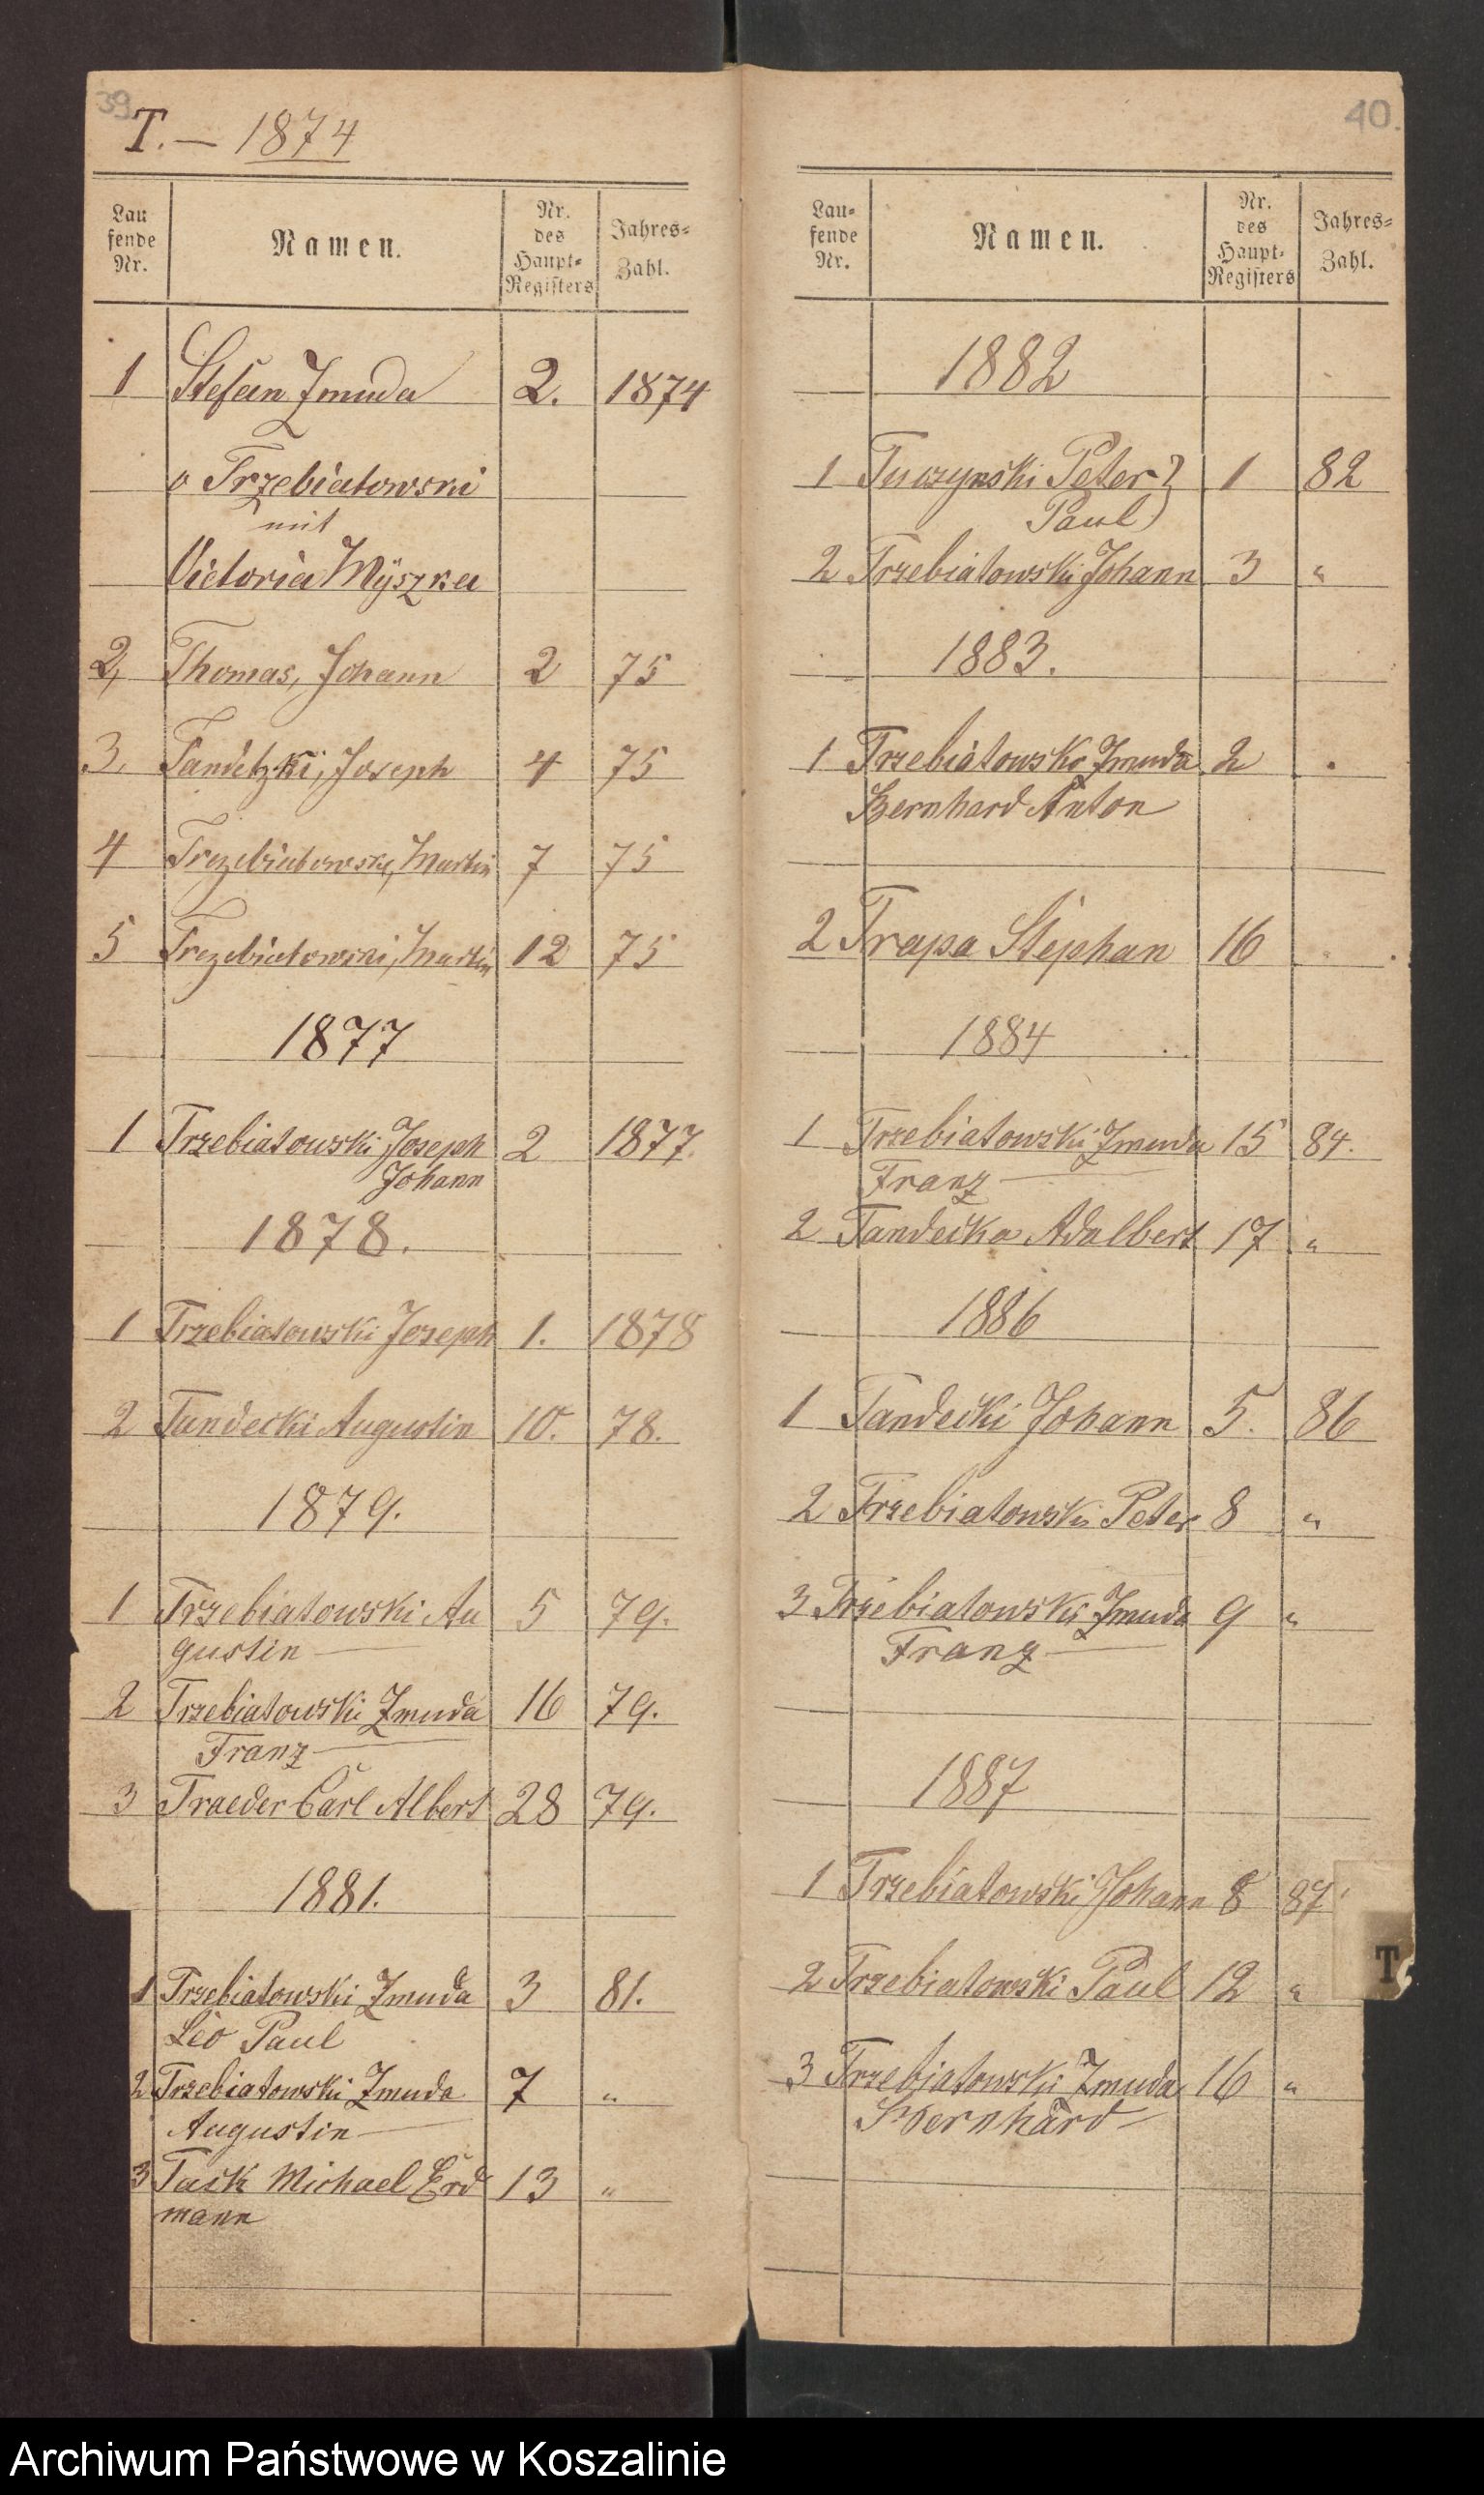 39.
T. — 1874
Laufende Nr. Namen. Nr. des Haupt-Registers Jahres-Zahl.
1 Stefan Zmuda 2. 1874
v Trzebiatowski
mit
Victoria Myszka
2, Thomas, Johann 2 75
3, Tandetzki, Joseph 4 75
4 Trezebiatowski, Martin 7 75
5 Trezebiatowski, Martin 12 75
1877
1 Trzebiatowski Joseph 2 1877.
Johann
1878.
1 Trzebiatowski Joseph 1. 1878
2 Tandecki Augustin 10. 78.
1879.
1 Trzebiatowski Au 5 79.
gustin —
2 Trzebiatowski Zmuda 16 79.
Franz —
3 Traeder Carl Albert 28 79.
1881.
1 Trzebiatowski Zmuda 3 81.
Leo Paul
2 Trzebiatowski Zmuda 7 "
Augustin —
3 Task Michael Erd 13 "
mann
40.
Lau-fende Nr. Namen. Nr. des Haupt-Registers Jahres-Zahl.
1882
1 Tuczynski Peter } 1 82
Paul
2 Trzebiatowski Johann 3 "
1883.
1 Trzebiatowski Zmuda 2 .
Bernhard Anton
2 Trapa Stephan 16
1884
1 Trzebiatowski Zmuda 15 84.
Franz —
2 Tandecka Adalbert 17 "
1886
1 Tandecki Johann 5. 86
2 Trzebiatowski Peter 8 "
3 Trzebiatowski Zmuda 9 "
Franz —
1887
1 Trzebiatowski Johann 8 87
2 Trzebiatowski Paul 12 "
T
3 Trzebiatowski Zmuda 16 "
Bernhard —
Archiwum Państwowe w Koszalinie